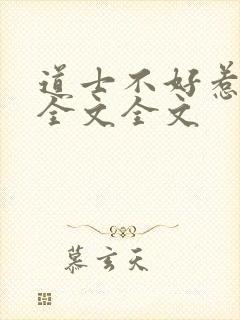 道士不好惹
全文全文
慕玄天